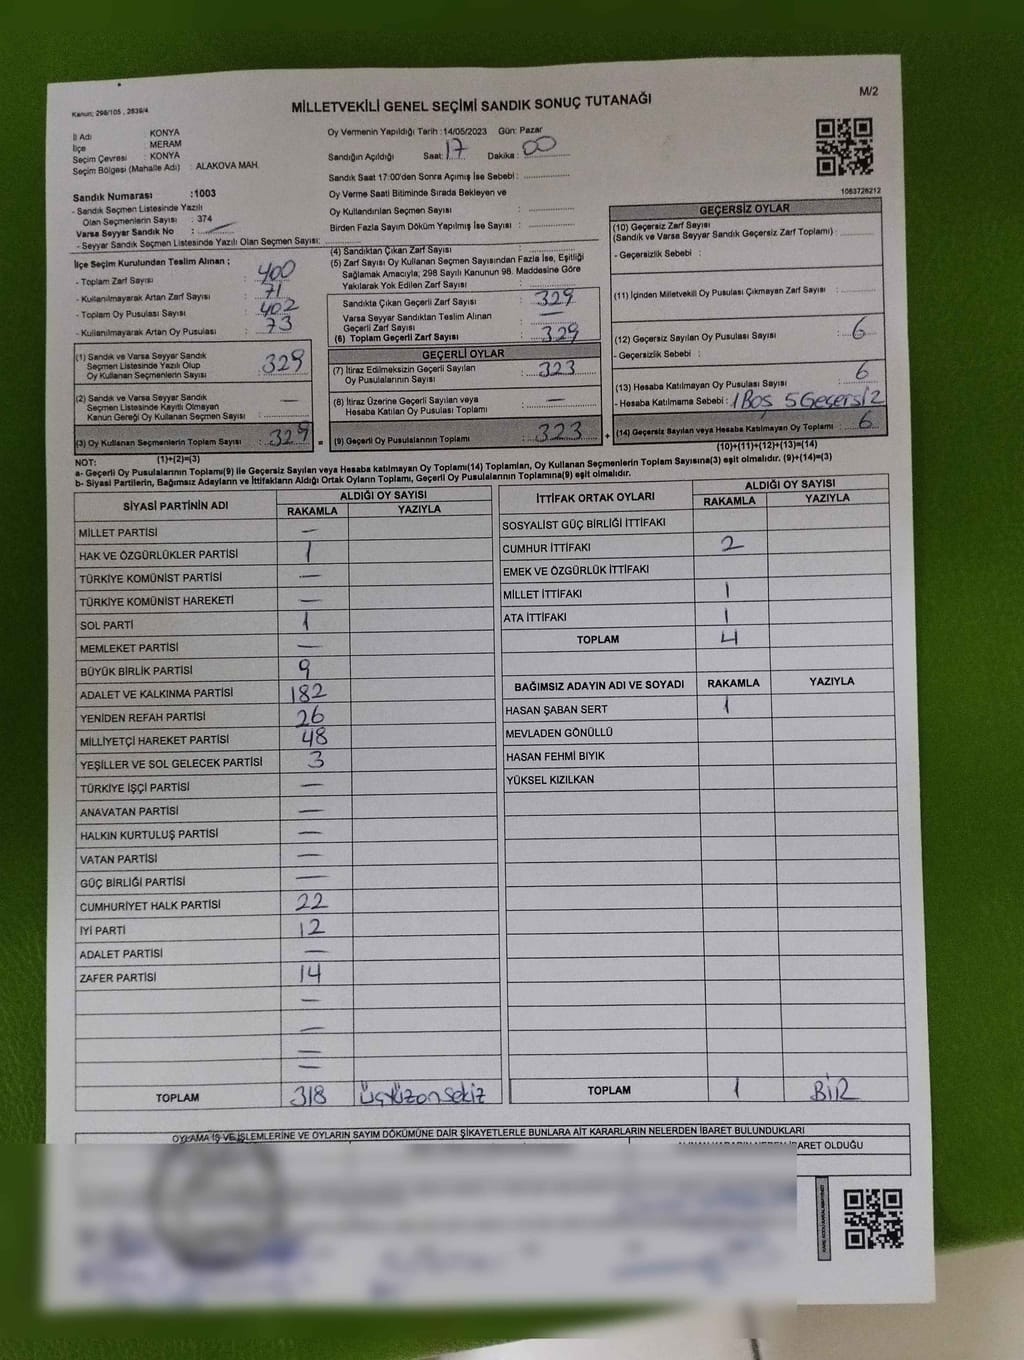 Kanun: 298/105 , 2839/4
MİLLETVEKİLİ GENEL SEÇİMİ SANDIK SONUÇ TUTANAĞI
M/2
İl Adı : KONYA
İlçe : MERAM
Seçim Çevresi : KONYA
Seçim Bölgesi (Mahalle Adı) : ALAKOVA MAH.
Oy Vermenin Yapıldığı Tarih : 14/05/2023 Gün: Pazar
Sandığın Açıldığı Saat: 17 Dakika : 00
Sandık Saat 17:00'den Sonra Açımış İse Sebebi :
Oy Verme Saati Bitiminde Sırada Bekleyen ve
Oy Kullandırılan Seçmen Sayısı :
Birden Fazla Sayım Döküm Yapılmış İse Sayısı :
1083728212
Sandık Numarası : 1003
- Sandık Seçmen Listesinde Yazılı
Olan Seçmenlerin Sayısı : 374
Varsa Seyyar Sandık No :
- Seyyar Sandık Seçmen Listesinde Yazılı Olan Seçmen Sayısı:
İlçe Seçim Kurulundan Teslim Alınan ;
- Toplam Zarf Sayısı : 400
- Kullanılmayarak Artan Zarf Sayısı : 71
- Toplam Oy Pusulası Sayısı : 402
- Kullanılmayarak Artan Oy Pusulası : 73
(1) Sandık ve Varsa Seyyar Sandık
Seçmen Listesinde Yazılı Olup
Oy Kullanan Seçmenlerin Sayısı : 329
(2) Sandık ve Varsa Seyyar Sandık
Seçmen Listelerinde Kayıtlı Olmayan
Kanun Gereği Oy Kullanan Seçmen Sayısı : —
(3) Oy Kullanan Seçmenlerin Toplam Sayısı : 329 =
(1)+(2)=(3)
(4) Sandıktan Çıkan Zarf Sayısı :
(5) Zarf Sayısı Oy Kullanan Seçmen Sayısından Fazla İse, Eşitliği
Sağlamak Amacıyla; 298 Sayılı Kanunun 98. Maddesine Göre
Yakılarak Yok Edilen Zarf Sayısı :
Sandıkta Çıkan Geçerli Zarf Sayısı : 329
Varsa Seyyar Sandıktan Teslim Alınan
Geçerli Zarf Sayısı : —
(6) Toplam Geçerli Zarf Sayısı : 329
GEÇERLİ OYLAR
(7) İtiraz Edilmeksizin Geçerli Sayılan
Oy Pusulalarının Sayısı : 323
(8) İtiraz Üzerine Geçerli Sayılan veya
Hesaba Katılan Oy Pusulası Toplamı : —
(9) Geçerli Oy Pusulalarının Toplamı : 323 +
GEÇERSİZ OYLAR
(10) Geçersiz Zarf Sayısı
(Sandık ve Varsa Seyyar Sandık Geçersiz Zarf Toplamı) :
- Geçersizlik Sebebi :
(11) İçinden Milletvekili Oy Pusulası Çıkmayan Zarf Sayısı :
(12) Geçersiz Sayılan Oy Pusulası Sayısı : 6
- Geçersizlik Sebebi :
(13) Hesaba Katılmayan Oy Pusulası Sayısı : 6
- Hesaba Katılmama Sebebi : 1 Boş 5 Geçersiz
(14) Geçersiz Sayılan veya Hesaba Katılmayan Oy Toplamı : 6
(10)+(11)+(12)+(13)=(14)
NOT:
a- Geçerli Oy Pusulalarının Toplamı(9) ile Geçersiz Sayılan veya Hesaba katılmayan Oy Toplamı(14) Toplamları, Oy Kullanan Seçmenlerin Toplam Sayısına(3) eşit olmalıdır. (9)+(14)=(3)
b- Siyasi Partilerin, Bağımsız Adayların ve İttifakların Aldığı Ortak Oyların Toplamı, Geçerli Oy Pusulalarının Toplamına(9) eşit olmalıdır.
SİYASİ PARTİNİN ADI ALDIĞI OY SAYISI
RAKAMLA YAZIYLA
MİLLET PARTİSİ —
HAK VE ÖZGÜRLÜKLER PARTİSİ 1
TÜRKİYE KOMÜNİST PARTİSİ —
TÜRKİYE KOMÜNİST HAREKETİ —
SOL PARTİ 1
MEMLEKET PARTİSİ —
BÜYÜK BİRLİK PARTİSİ 9
ADALET VE KALKINMA PARTİSİ 182
YENİDEN REFAH PARTİSİ 26
MİLLİYETÇİ HAREKET PARTİSİ 48
YEŞİLLER VE SOL GELECEK PARTİSİ 3
TÜRKİYE İŞÇİ PARTİSİ —
ANAVATAN PARTİSİ —
HALKIN KURTULUŞ PARTİSİ —
VATAN PARTİSİ —
GÜÇ BİRLİĞİ PARTİSİ —
CUMHURİYET HALK PARTİSİ 22
İYİ PARTİ 12
ADALET PARTİSİ —
ZAFER PARTİSİ 14
—
—
—
—
TOPLAM 318 üçyüzonsekiz
İTTİFAK ORTAK OYLARI ALDIĞI OY SAYISI
RAKAMLA YAZIYLA
SOSYALİST GÜÇ BİRLİĞİ İTTİFAKI
CUMHUR İTTİFAKI 2
EMEK VE ÖZGÜRLÜK İTTİFAKI
MİLLET İTTİFAKI 1
ATA İTTİFAKI 1
TOPLAM 4
BAĞIMSIZ ADAYIN ADI VE SOYADI RAKAMLA YAZIYLA
HASAN ŞABAN SERT 1
MEVLADEN GÖNÜLLÜ
HASAN FEHMİ BIYIK
YÜKSEL KIZILKAN
TOPLAM 1 BİR
OYLAMA İŞ VE İŞLEMLERİNE VE OYLARIN SAYIM DÖKÜMÜNE DAİR ŞİKAYETLERLE BUNLARA AİT KARARLARIN NELERDEN İBARET BULUNDUKLARI
İBARET OLDUĞU